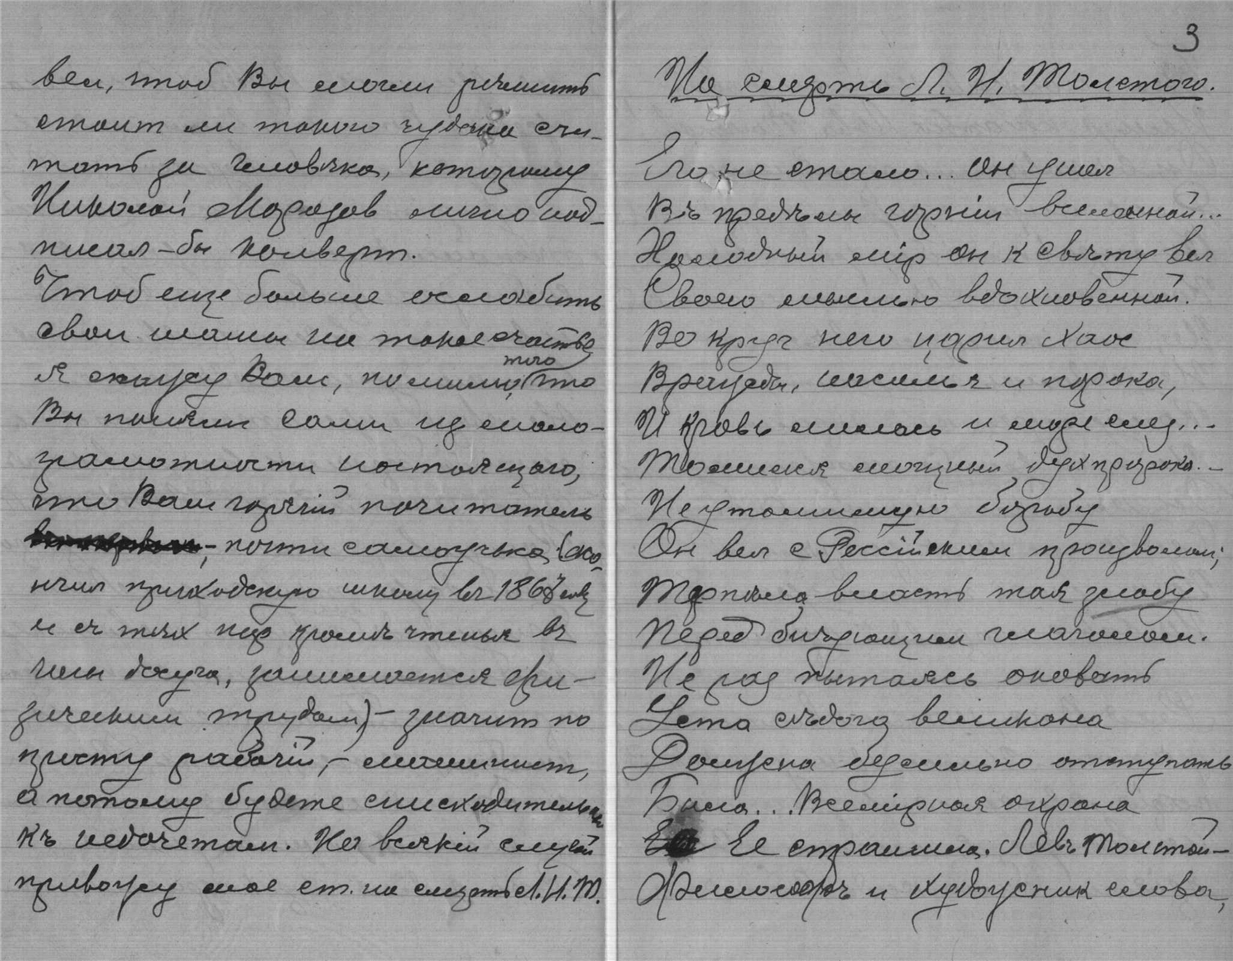 вел, чтоб Вы могли рѣшить
стоит ли такого чудака счи-
тать за человѣка, которому
Николай Морозов лично под-
писал-бы конверт.
Чтоб еще больше ослабить
свои шансы на такое счастье
я скажу Вам, помимо того что
Вы поняли сами из мало-
грамотности настоящаго,
что Вам горячій почитатель
– почти самоучка (око-
нчил приходскую школу въ 1867 году
и с тѣх пор кромѣ чтенья въ
часы досуга, занимается фи-
зическим трудом) – значит по
просту рабочій, – машинист,
а потому будете снисходительны
къ недочетам. На всякій случай
привожу мое ст. на смерть Л.Н.Т.
3
На смерть Л. Н. Толстого.
Его не стало... он ушел
Въ предѣлы горній вселенной...
Холодный мір он к свѣту вел
Своею мыслью вдохновенной.
Вокруг него царил хаос
Вражды, насилья и порока,
И кровь лилась и море слез...
Томился мощный дух пророка.–
Неутомимую борьбу
Он вел с Россійским произволом;
Терпѣла власть тая злобу
Перед бичующим глаголом.
Не раз пытаясь оковать
Уста сѣдого великана
Должна безсильно отступать
Была... Всемірная охрана
Ее страшила. Левъ Толстой –
Философъ и художник слова,